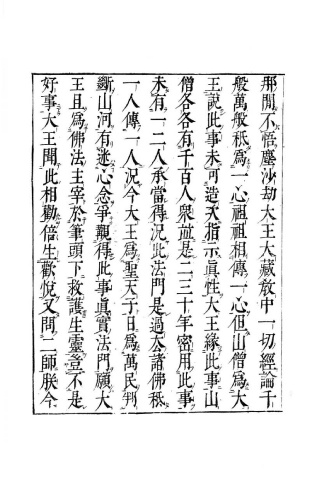 那間不悟塵沙劫大王大藏教中一切經論千
般萬般秖爲一心祖祖相傳一心但山僧爲大
王說此事未可造次指示眞性大王緣此事山
僧各各有千百人衆竝是二三十年密用此事
未有一二人承當得況此法門是過去諸佛秖
一人傳一人況今大王爲聖天子日爲萬民判
斷山河有迹心念爭觀得此事眞實法門願大
王且爲佛法主宰於筆頭下救護生靈豈不是
好事大王聞此相勸倍生歡悅又問二師朕今